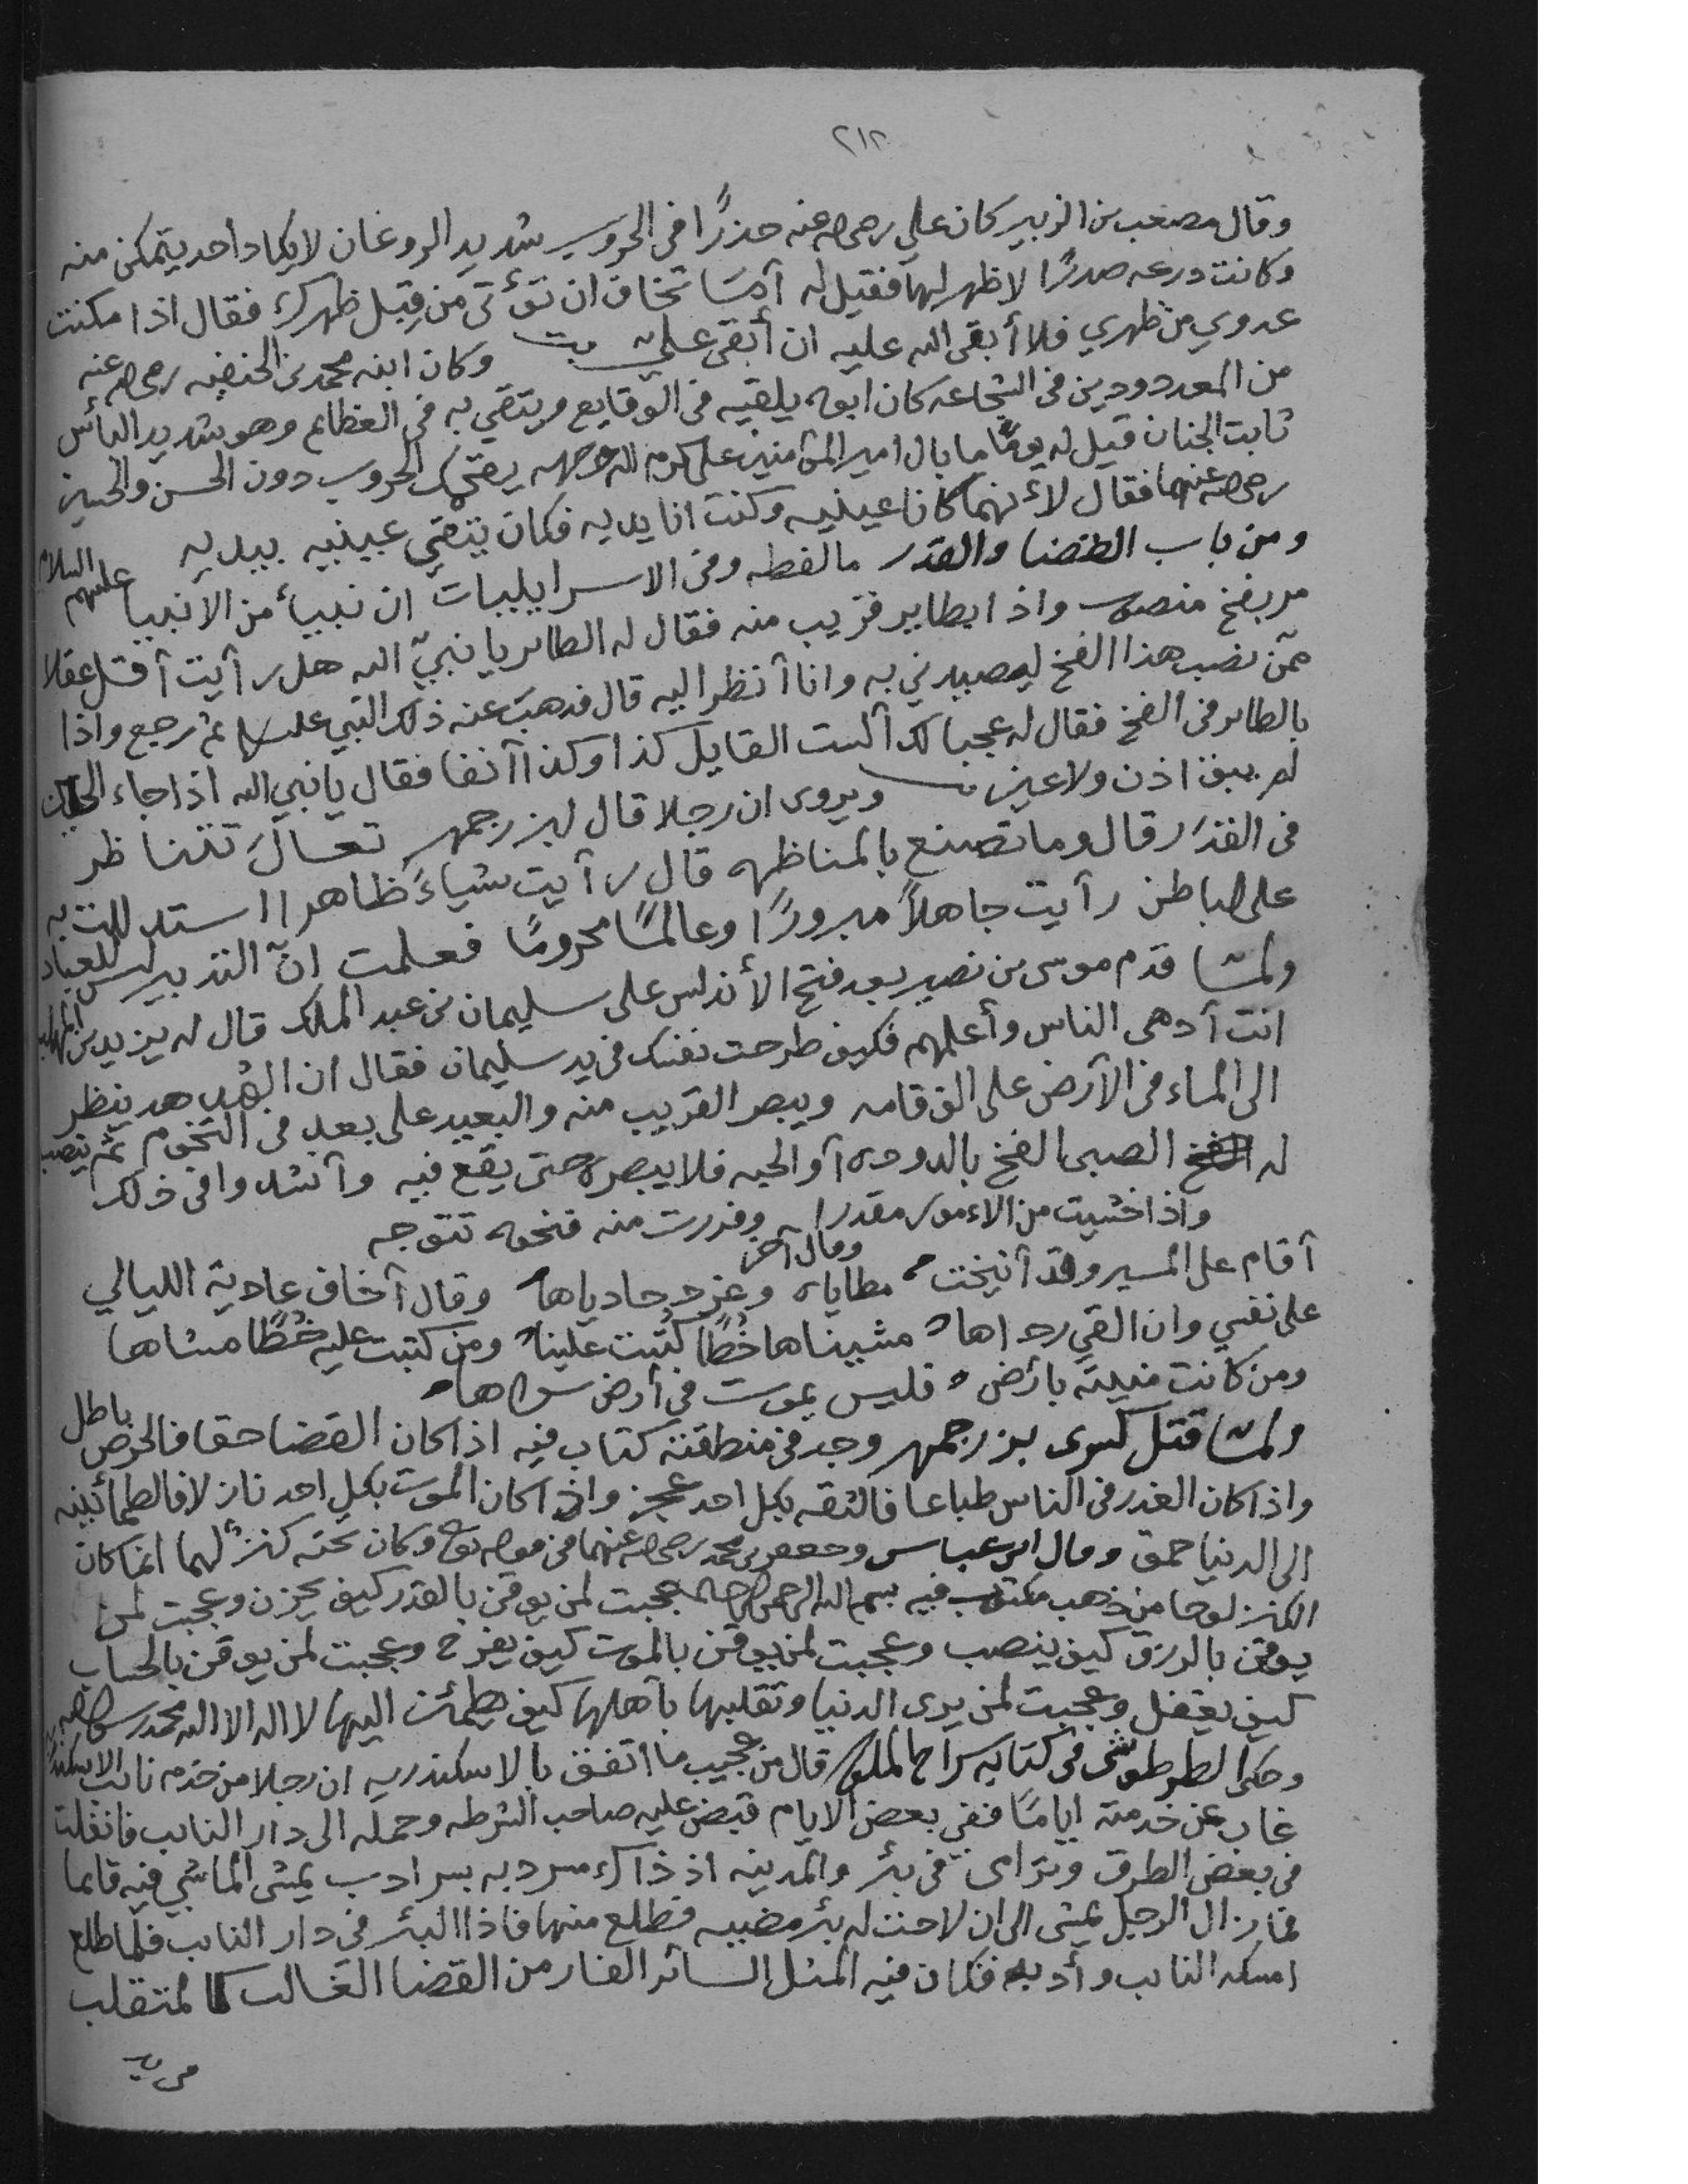 ٢١٢
وقال مصعب بن الزبير كان علي رضي الله عنه حذرًا في الحروب شديد الروغان لا يكاد احد يتمكن منه
وكانت درعه صدرًا لا ظهر لها فقيل له أما تخاف ان تؤتى من قِبل ظهرك فقال اذا مكنت
عدوي من ظهري فلا أبقى الله عليه ان أبقى علي وكان ابنه محمد بن الحنفيه رضي الله عنه
من المعدودين في الشجاعه كان ابوه يلقيه في الوقايع ويتقي به في العظايم وهو شديد البأس
ثابت الجنان قيل له يومًا ما بال امير المؤمنين علي كرم الله وجهه يقحمك الحروب دون الحسن والحسين
رضي الله عنهما فقال لأنهما كانا عينيه وكنت انا يديه فكان يتقي عينيه بيديه
ومن باب القضا والقدر ما لفظه وفي الاسراييليات ان نبيأ من الانبيا عليهم السلام
مر بفخ منصوب واذا بطاير قريب منه فقال له الطاير يا نبيّ الله هل رأيت أقل عقلا
ممّن نصب هذا الفخ ليصيدني به وانا أنظر اليه قال فذهب عنه ذلك النبي عليه السلام ثم رجع واذا
بالطاير في الفخ فقال له عجبا لك ألست القايل كذا وكذا آنفا فقال يا نبي الله اذا جاء الحين
لم يبق اذن ولا عين ويروى ان رجلا قال لبزرجمهر تعالَ نتناظر
في القدر قال وما تصنع بالمناظره قال رأيت شياءً ظاهرا استدللت به
على الباطن رأيت جاهلاً مبرورًا وعالمًا محرومًا فعلمت انّ التدبير ليس للعباد
ولما قدم موسى بن نصير بعد فتح الأندلس على سليمان بن عبد الملك قال له يزيد بن المهلب
انت أدهى الناس وأعلمهم فكيف طرحت نفسك في يد سليمان فقال ان الهدهد ينظر
الى الماء في الأرض على الف قامه ويبصر القريب منه والبعيد على بعد في التخوم ثم ينصب
له الصبي الفخ بالدوده أو الحبه فلا يبصره حتى يقع فيه وأنشدوا في ذلك
واذا خشيت من الاءمور مقدرا وفررت منه فنحوه تتوجه
وقال آخر
أقام على المسير وقد أنيخت مطاياه وغرد حادياها وقال أخاف عادية الليالي
على نفسي وان القى رداها مشيناها خُطًا كُتبت علينا ومن كتبت عليه خُطًا مشاها
ومن كانت منيته بأرض فليس يموت في أرض سواها
ولما قتل كسرى بزرجمهر وجد في منطقته كتاب فيه اذا كان القضا حقا فالحرص باطل
واذا كان الغدر في الناس طباعا فالثقه بكل احد عجز واذا كان الموت بكل احد نازلا فالطمأنينه
الى الدنيا حمق وقال ابن عباس وجعفر بن محمد رضي الله عنهما في قوله تعالى وكان تحته كنز لهما انما كان
الكنز لوحا من ذهب مكتوب فيه بسم الله الرحمن الرحيم عجبت لمن يوقن بالقدر كيف يحزن وعجبت لمن
يوقن بالرزق كيف ينصب وعجبت لمن يوقن بالموت كيف يفرح وعجبت لمن يوقن بالحساب
كيف يغفل وعجبت لمن يرى الدنيا وتقلبها بأهلها كيف يطمأن اليها لا اله الا الله محمد رسول الله
وحكى الطرطوشي في كتابه سراج الملوك قال من عجيب ما اتفق بالاسكندريه ان رجلا من خدم نايب الاسكندريه
غاب عن خدمته ايامًا ففي بعض الايام قبض عليه صاحب الشرطه وحمله الى دار النايب فانفلت
في بعض الطرق وترامى في بئر والمدينه اذ ذاك مسردبه بسرادب يمشي الماشي فيه قايما
فما زال الرجل يمشي الى ان لاحت له بئر مضييه فطلع منها فاذا البئر في دار النايب فلما طلع
امسكه النايب وأدبه فكان فيه المثل السائر الفار من القضا الغالب كالمتقلب